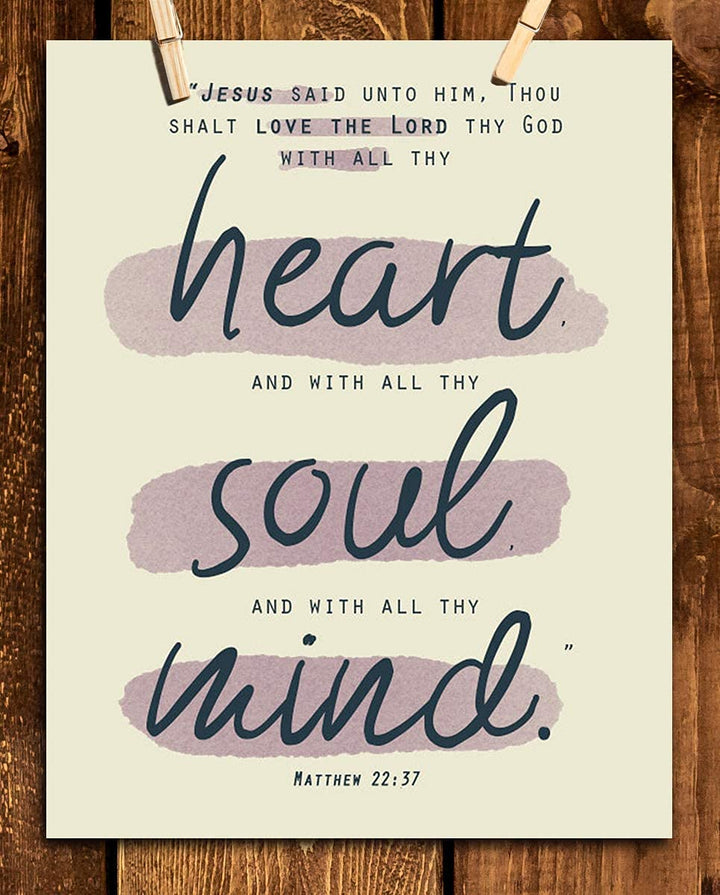 "Jesus said unto him, Thou
shalt love the Lord thy God
with all thy
heart,
and with all thy
soul,
and with all thy
mind."
Matthew 22:37